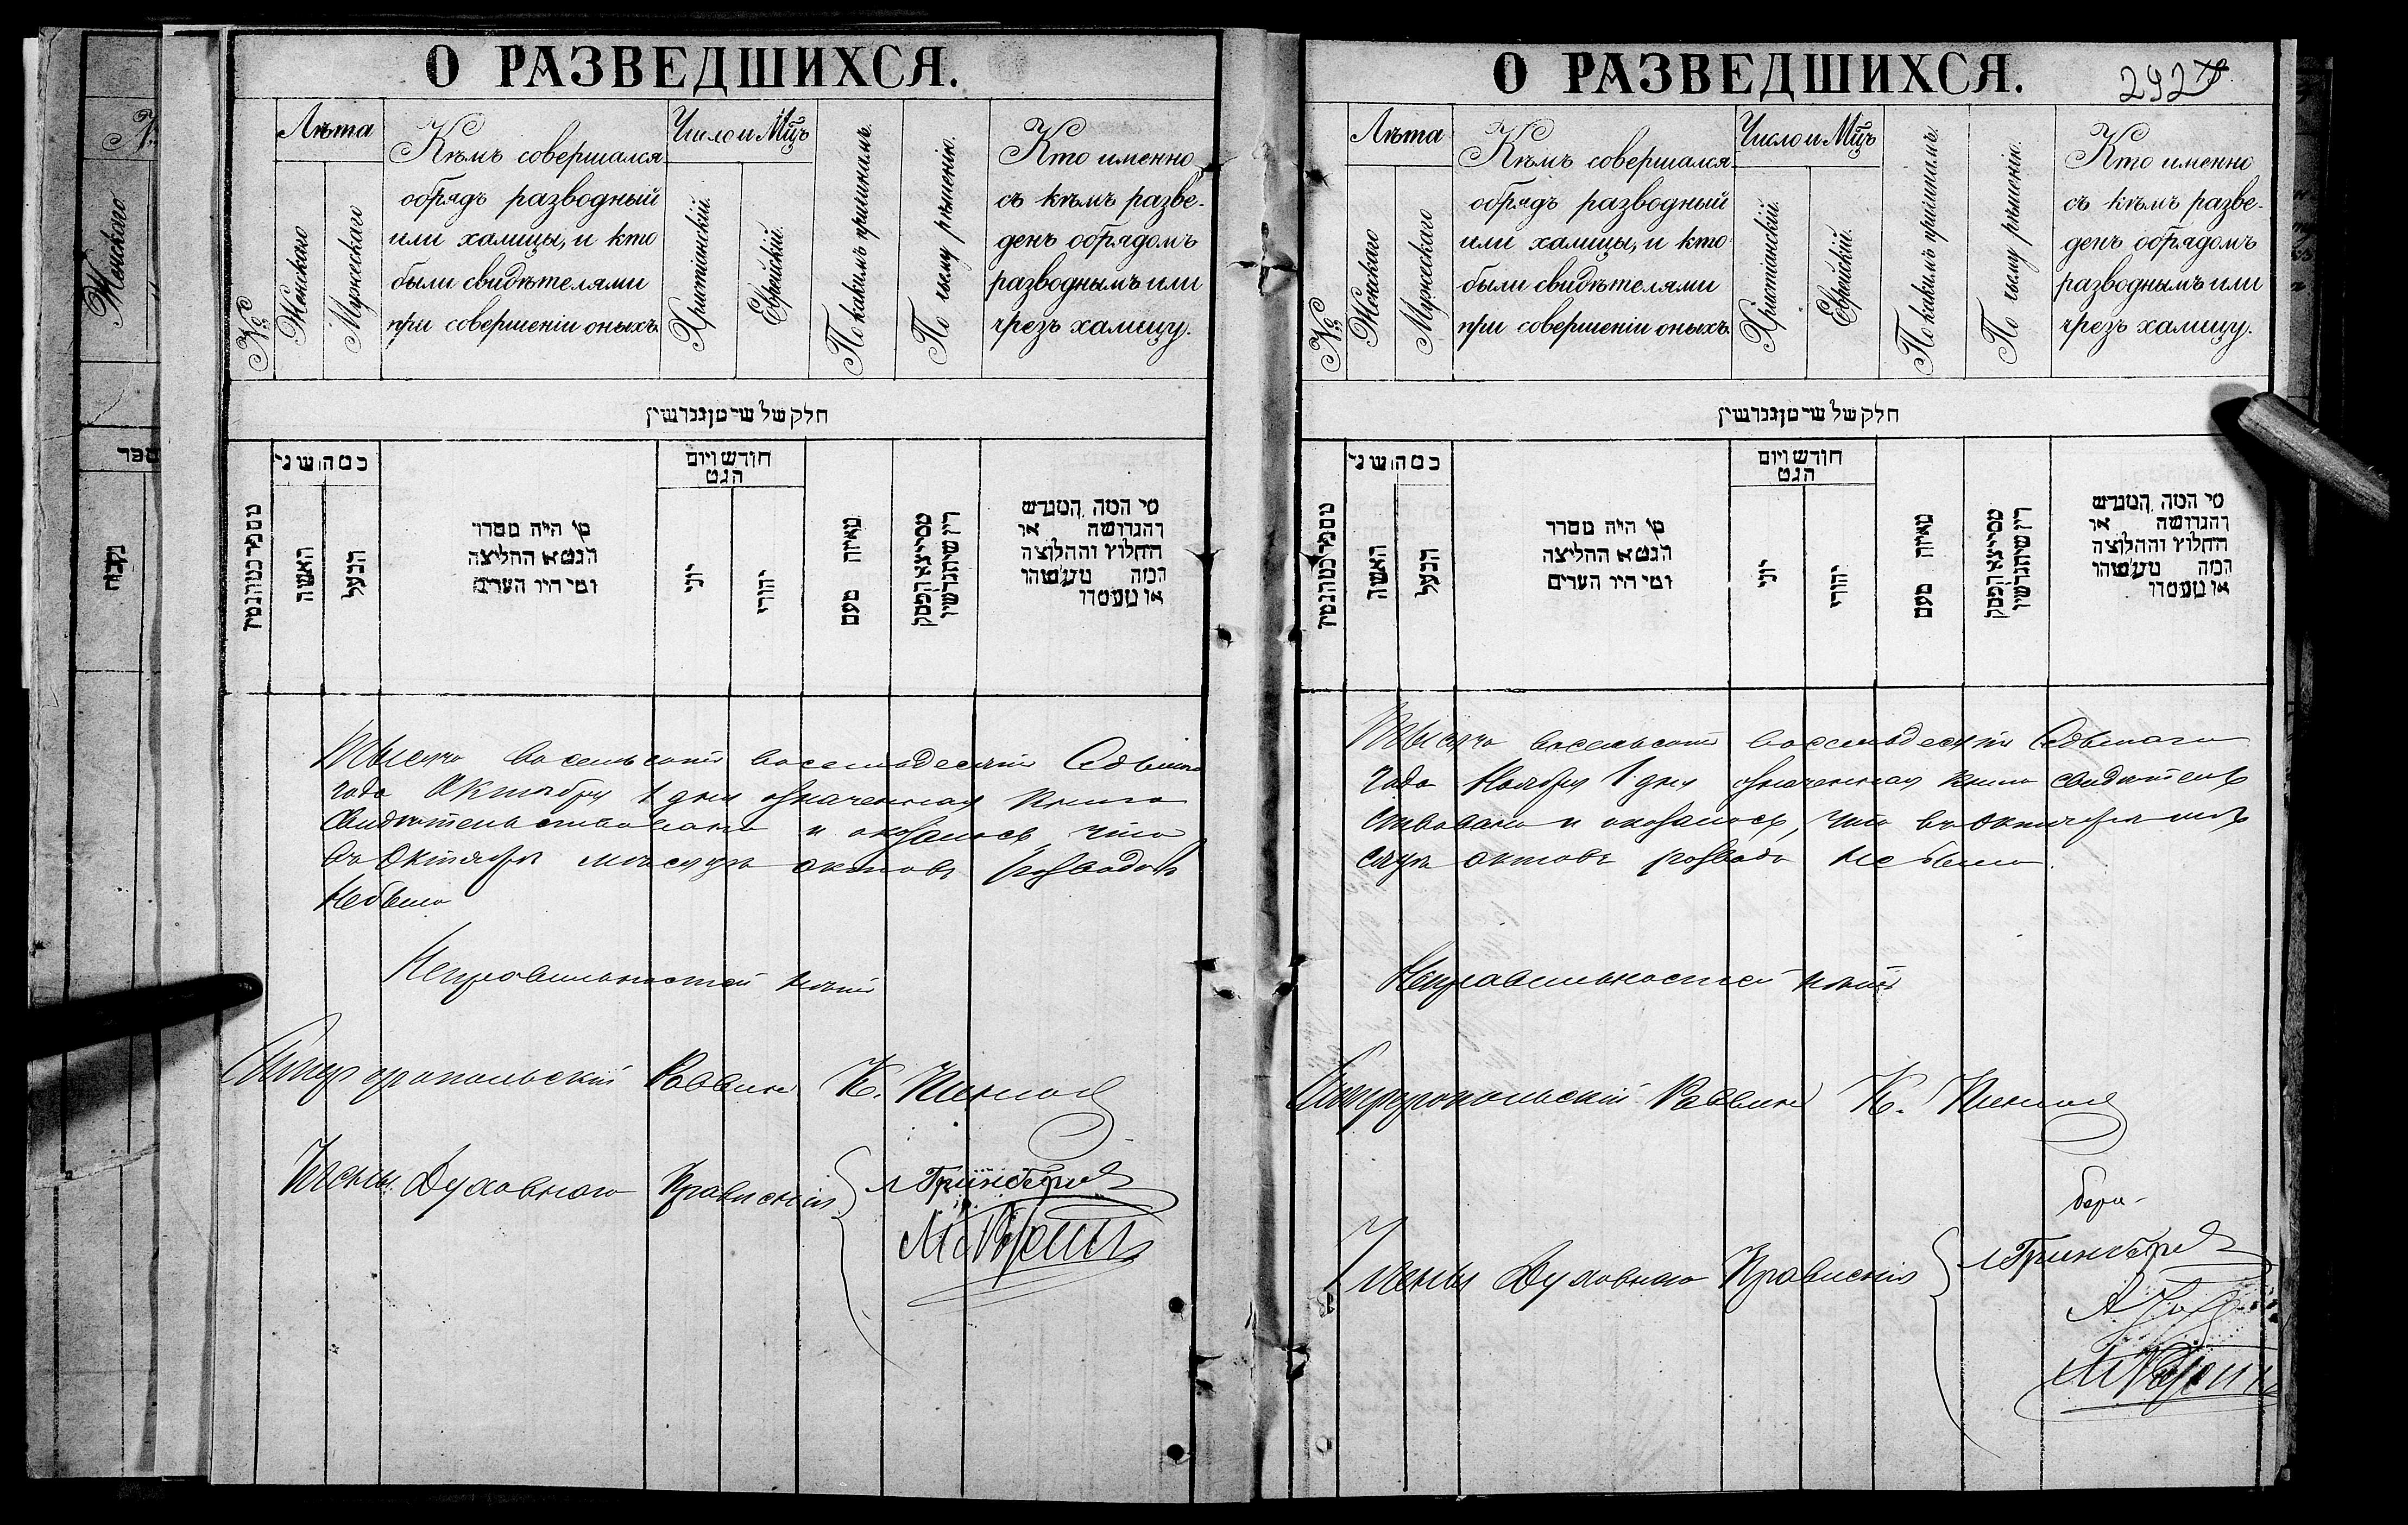 О РАЗВЕДШИХСЯ.
№
Лѣта
Женскаго
Мужескаго
Кѣмъ совершался
обрядъ разводный
или халицы, и кто
были свидѣтелями
при совершеніи оныхъ.
Число и Мѣсяцъ
Христіанскій.
Еврейскій.
По какимъ причинамъ.
По чьему рѣшенію.
Кто именно
съ кѣмъ разве-
денъ обрядомъ
разводнымъ или
чрезъ халицу.
חלק של
האשה
הבעל
מי היה מסדר
הגט או החליצה
ומי היו העדים
חודש ויום
הגט
יוני
יהודי
מאיזה טעם
מי המה המגרש
והגרושה או
החלוץ והחלוצה
המה
Тысяча восемьсотъ восемьдесятъ Седьмого
года Октября 1 дня означенная книга
Свидѣтельствована и оказалось, что
въ Октябрѣ мѣсяцѣ актовъ разводовъ
небыло
Неправильностей нѣтъ
Симферопольскій Раввинъ К.
Члены Духовнаго Правленія
Гринберг
О РАЗВЕДШИХСЯ.
292
№
Лѣта
Женскаго
Мужескаго
Кѣмъ совершался
обрядъ разводный
или халицы, и кто
были свидѣтелями
при совершеніи оныхъ.
Число и Мѣсяцъ
Христіанскій.
Еврейскій.
По какимъ причинамъ.
По чьему рѣшенію.
Кто именно
съ кѣмъ разве-
денъ обрядомъ
разводнымъ или
чрезъ халицу.
חלק של
האשה
הבעל
מי היה מסדר
הגט או החליצה
ומי היו העדים
חודש ויום
הגט
יוני
יהודי
מאיזה טעם
מי המה המגרש
והגרושה או
החלוץ והחלוצה
המה
Тысяча восемьсотъ восемьдесятъ Седьмаго
года Ноября 1 дня означенная книга свидѣтель
ствована и оказалось, что въ Октябрѣ мѣ
сяцѣ актовъ развода не было.
Неправильностей нѣтъ
Симферопольскій Раввинъ К.
Члены Духовнаго Правленія
Гринберг